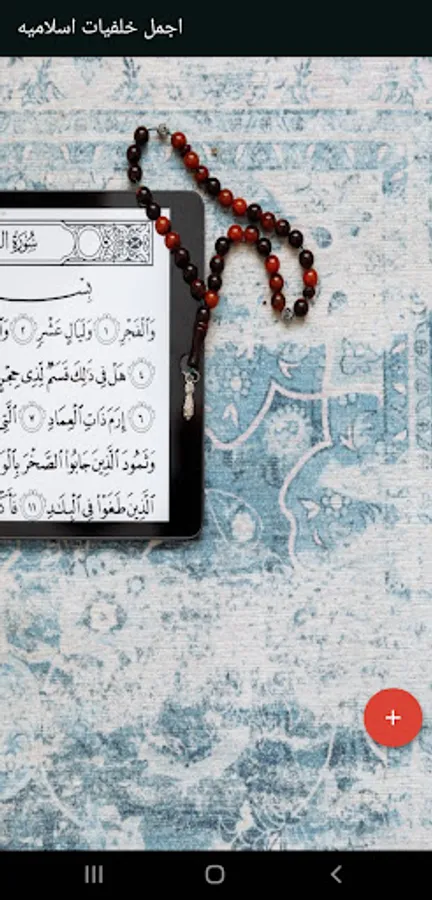 اجمل خلفيات اسلاميه
سُورَةُ
بِسْـ
وَالْفَجْرِ ١ وَلَيَالٍ عَشْرٍ ٢
٤ هَلْ فِي ذَٰلِكَ قَسَمٌ لِذِي حِجْرٍ
٦ إِرَمَ ذَاتِ الْعِمَادِ ٧ الَّتِي
وَثَمُودَ الَّذِينَ جَابُوا الصَّخْرَ بِالْوَا
الَّذِينَ طَغَوْا فِي الْبِلَادِ ١١